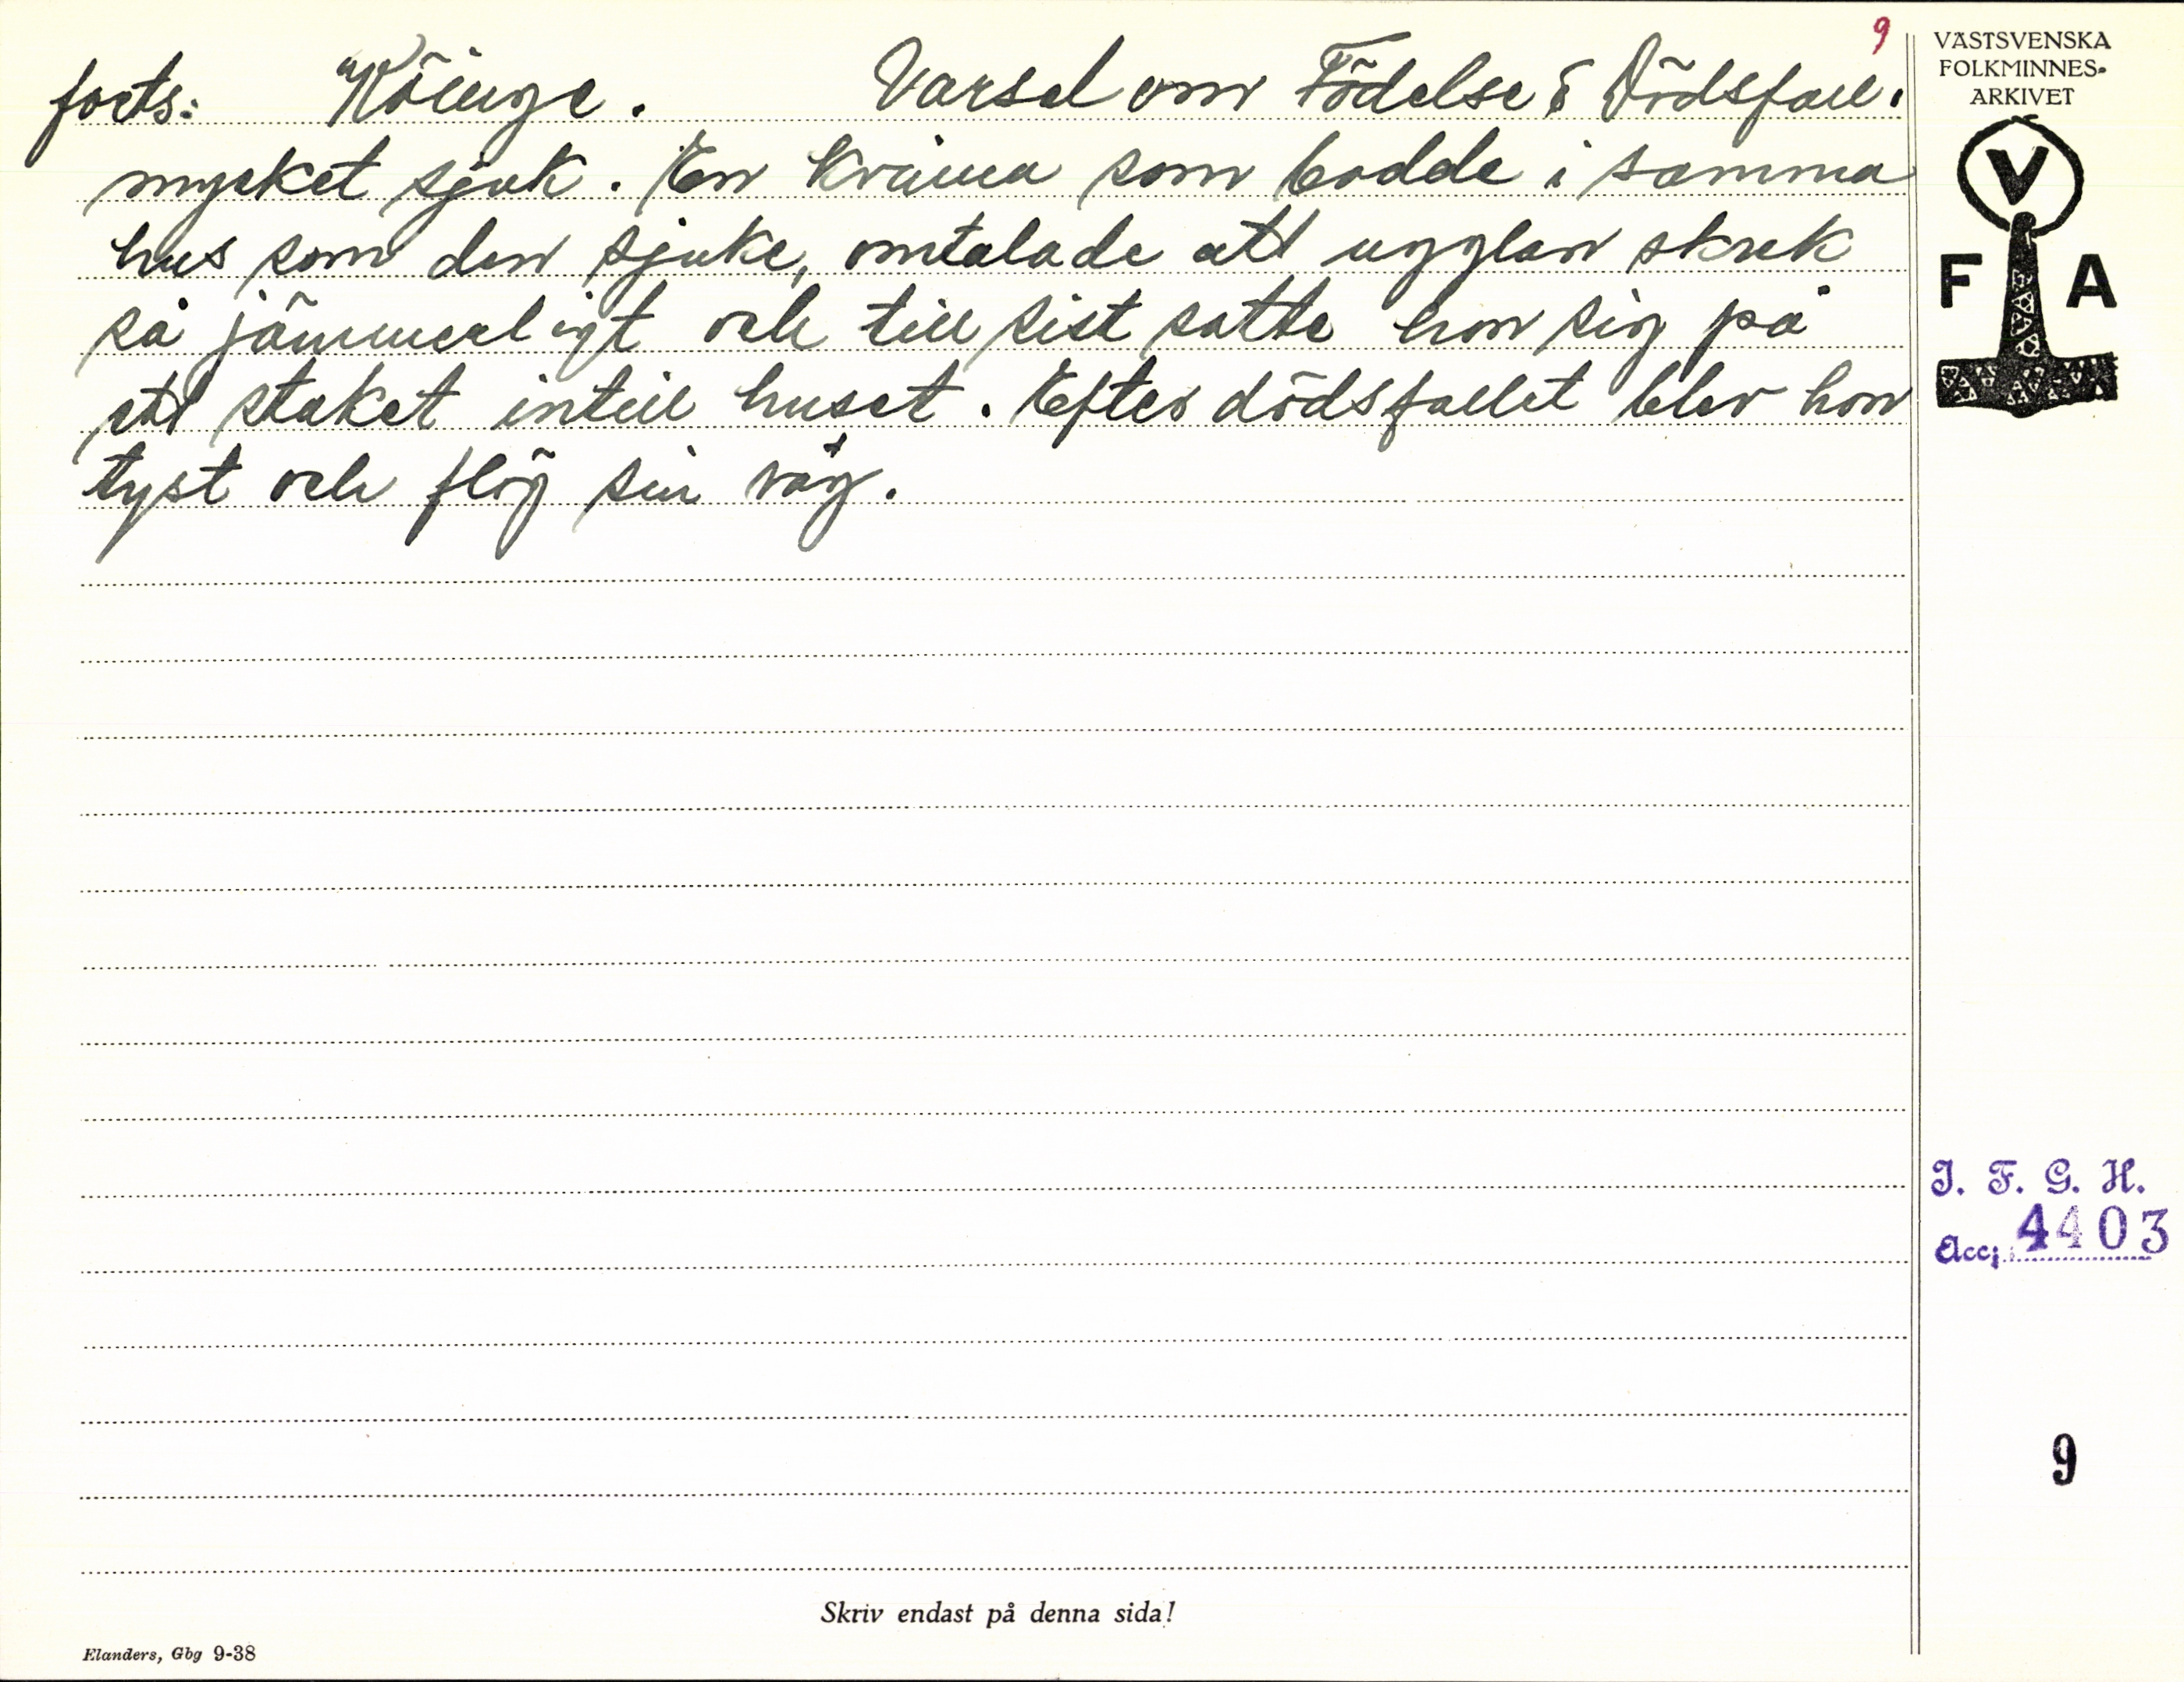 9
forts: Köinge. Varsel om Födelse & Dödsfall.
mycket sjuk. En kvinna som bodde i samma
hus som den sjuke, omtalade att ugglan skrek
så jämmerligt och till sist satte hon sig på
ett staket intill huset. Efter dödsfallet blev hon
tyst och flög sin väg.
VÄSTSVENSKA
FOLKMINNES-
ARKIVET
V
F A
I. F. G. H.
Acc; 4403
9
Skriv endast på denna sida!
Elanders, Gbg 9-38